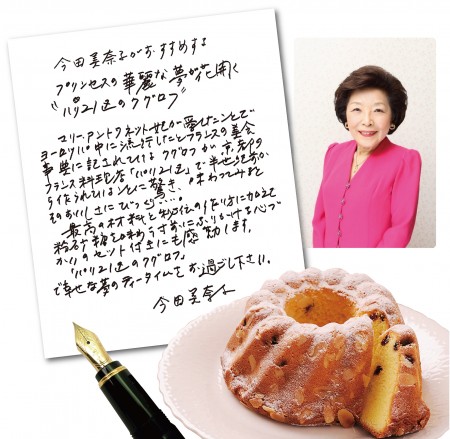 今田美奈子がおすすめする
プリンセスの華麗な夢が花開く
"パリ21区のクグロフ"
マリー・アントワネットが愛したことで
ヨーロッパ中に流行したとフランスの美食
事典に記されているクグロフが京都の
フランス料理店「パリ21区」で半世紀前か
ら作られていることに驚き、味わってみると
そのおいしさにびっくり…。
最高の材料と秘伝の作り方に加えて
粉砂糖を召し上がる
かりのセット付きにも感動します。
「パリ21区のクグロフ」
で幸せな夢のティータイムをお過し下さい。
今田美奈子